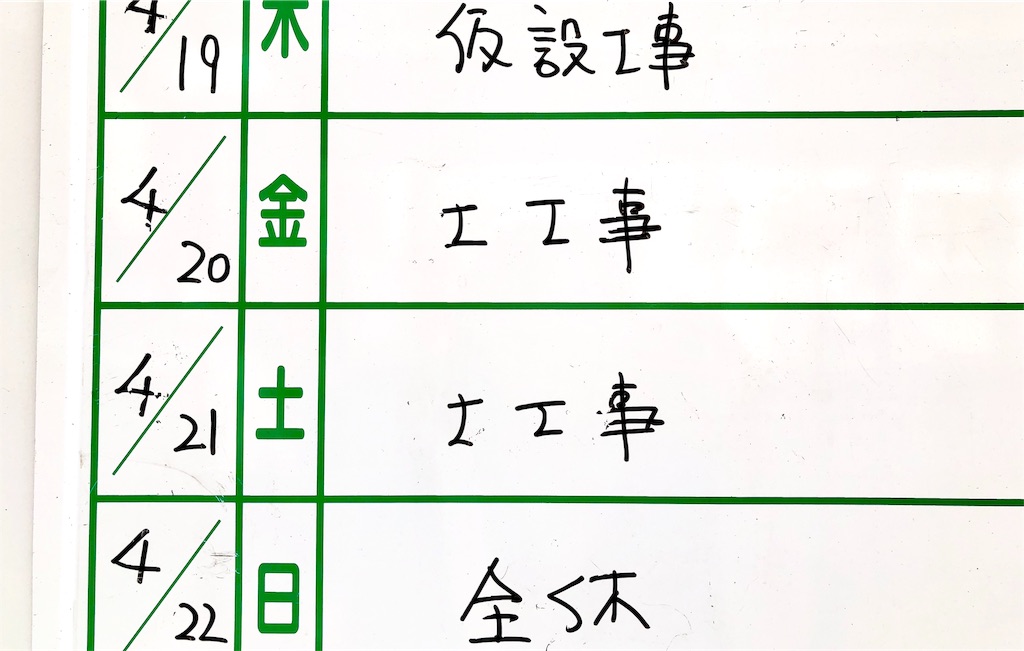 4/19 木 仮設工事
4/20 金 土工事
4/21 土 土工事
4/22 日 全休